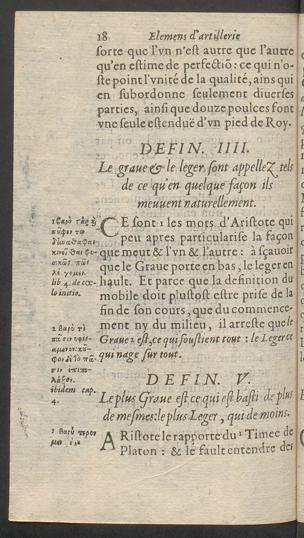 18 Elemens d'artillerie
sorte que l'vn n'est autre que l'autre
qu'en estime de perfectiõ: ce qui n'o-
ste point l'vnité de la qualité, ains qui
en subordonne seulement diuerses
parties, ainsi que douze poulces font
vne seule estenduë d'vn pied de Roy.
DEFIN. IIII.
Le graue & le leger sont appellez tels
de ce qu'en quelque façon ils
meuuent naturellement.
CE sont 1 les mots d'Aristote qui
peu apres particularise la façon
que meut & l'vn & l'autre: à sçauoir
que le Graue porte en bas, le leger en
hault. Et parce que la definition du
mobile doit plustost estre prise de la
fin de son cours, que du commence-
ment ny du milieu, il arreste que le
Graue 2 est, ce qui soustient tout: le Leger ce
qui nage sur tout.
lib. 4. de cœ-
lo initio.
ibidem cap.
4.
DEFIN. V.
Le plus Graue est ce qui est basti de plus
de mesmes: le plus Leger, qui de moins.
ARistote le rapporte du 1 Timee de
Platon: & le fault entendre des